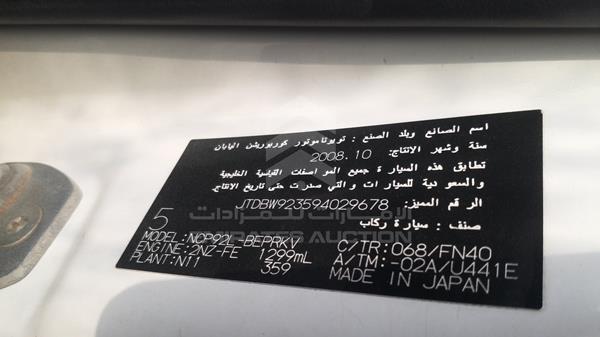 اسم الصانع وبلد الصنع : تويوتاموتور كوربوريشن اليابان
سنة وشهر الانتاج: 2008.10
تطابق هذه السيارة جميع المواصفات القياسية الخليجية
والسعودية للسيارات والتي صدرت حتى تاريخ الانتاج
الرقم المميز: JTDBW923594029678
صنف : سيارة ركاب
5
الإمارات للمزادات
EMIRATES AUCTION
MODEL: NCP92L-BEPRKV C/TR: 068/FN40
ENGINE: 2NZ-FE 1299mL A/TM: -02A/U441E
PLANT: N11 359 MADE IN JAPAN